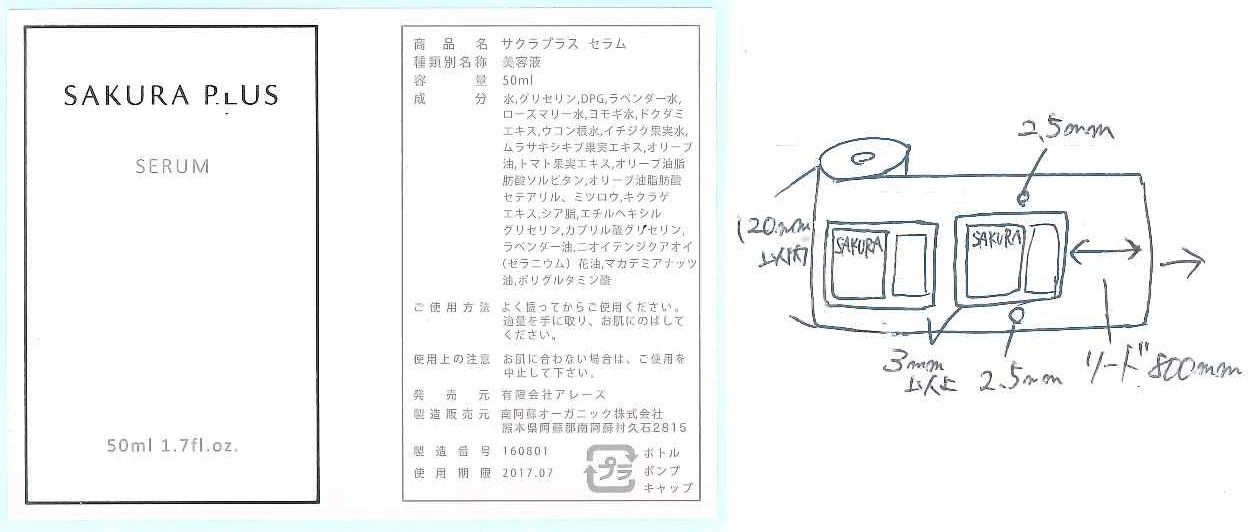 SAKURA PLUS
SERUM
50ml 1.7fl.oz.
商品名 サクラプラス セラム
種類別名称 美容液
容量 50ml
成分 水,グリセリン,DPG,ラベンダー水,
ローズマリー水,ヨモギ水,ドクダミ
エキス,ウコン根水,イチジク果実水,
ムラサキシキブ果実エキス,オリーブ
油,トマト果実エキス,オリーブ油脂
肪酸ソルビタン,オリーブ油脂肪酸
セテアリル、ミツロウ,キクラゲ
エキス,シア脂,エチルヘキシル
グリセリン,カプリル酸グリセリン,
ラベンダー油,ニオイテンジクアオイ
(ゼラニウム)花油,マカデミアナッツ
油,ポリグルタミン酸
ご使用方法 よく振ってからご使用ください。
適量を手に取り、お肌にのばして
ください。
使用上の注意 お肌に合わない場合は、ご使用を
中止して下さい。
発売元 有限会社アレーズ
製造販売元 南阿蘇オーガニック株式会社
熊本県阿蘇郡南阿蘇村久石2815
製造番号 160801
使用期限 2017.07
プラ
ボトル
ポンプ
キャップ
2.5mm
120mm
以内
SAKURA
SAKURA
3mm
以上
2.5mm
リード800mm